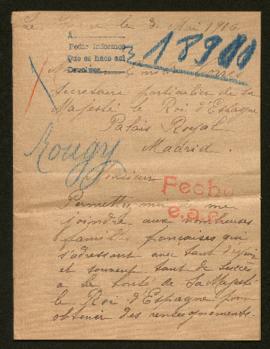 Le 3 Mai 1916
A
Pedir informes
Que se hace así
Devolver
18911
Secrétaire particulier de sa
Majesté le Roi d'Espagne
Palais Royal
Madrid.
Rougy
Monsieur
Fecho
e.a.c.
Permettez moi de me
joindre aux nombreuses
familles françaises qui
s'adressent avec tant d'espoir
et souvent tant de succès
à la bonté de Sa Majesté
le Roi d'Espagne pour
obtenir des renseignements